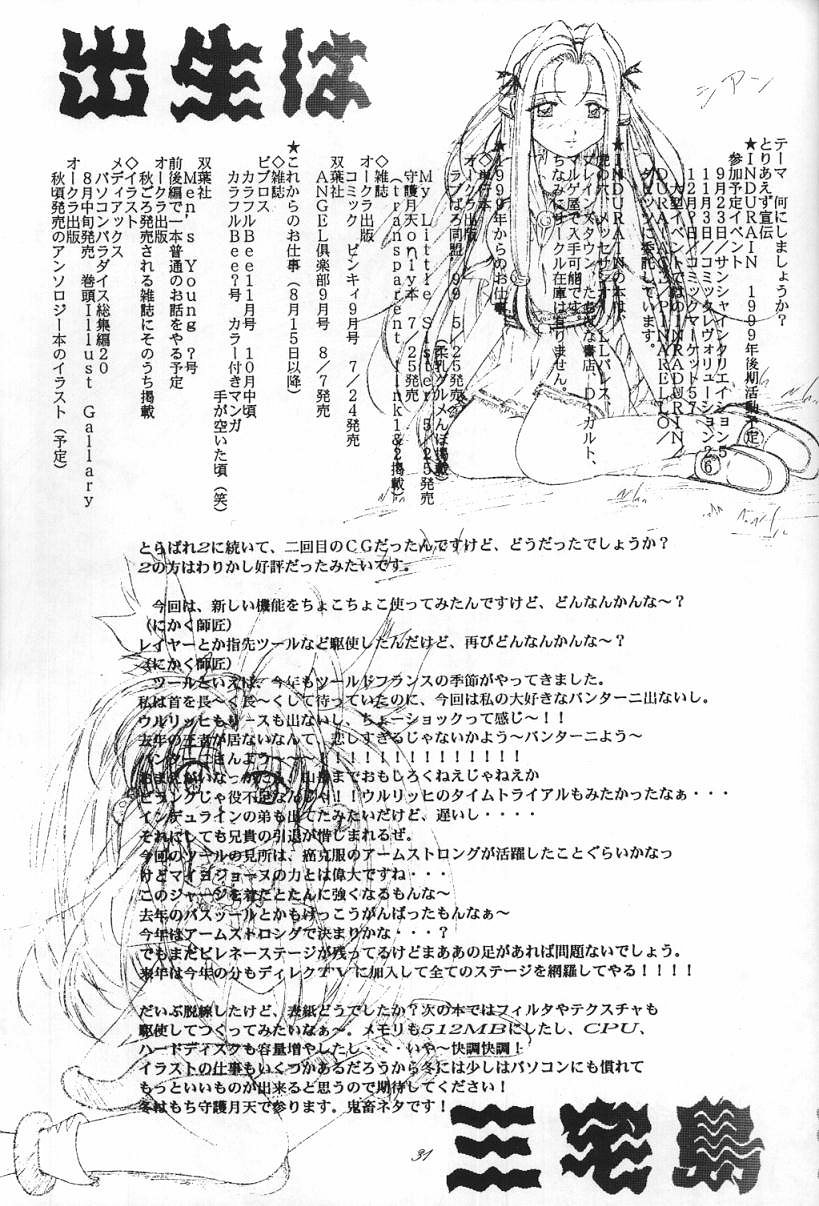 出生は
シアン
テーマ 何にしましょうか?
とりあえず宣伝
★INDURAIN 1999年後期活動予定
参加予定イベント
9月23日/サンシャインクリエイション5
11月3日/コミックレヴォリューション26
12月?日/コミックマーケット57
大型イベントではの INRADURIN/
DURA-ACE/PINARELLO/
ダビッツに委託しています。
★INDURAINの本は、
虎の穴、メッセサンオー、LLパレス、
プレインズタウン、たちばな書店、D、カルト、
マルゲ屋で入手可能です。
ちなみにサークル在庫は有りません。
★1999年からのお仕事
◇単行本
オークラ出版
ラブぱろ同盟 '99 5/25発売
(柔乳グルメんぼ掲載)
My Little Sister 5/25発売
守護月天only本 7/25発売
(transparent link1&2掲載)
◇雑誌
オークラ出版
コミック ピンキィ9月号 7/24発売
双葉社
ANGEL倶楽部9月号 8/7発売
★これからのお仕事(8月15日以降)
◇雑誌
ビブロス
カラフルBee11月号 10月中頃
カラフルBee?号 カラー付きマンガ
手が空いた頃(笑)
双葉社
Men's Young ?号
前後編で一本普通のお話をやる予定
オークラ出版
秋ごろ発売される雑誌にそのうち掲載
◇イラスト
メディアックス
パソコンパラダイス総集編20
8月中旬発売 巻頭Illust Gallary
オークラ出版
秋頃発売のアンソロジー本のイラスト(予定)
とらばれ2に続いて、二回目のCGだったんですけど、どうだったでしょうか?
2の方はわりかし好評だったみたいです。
今回は、新しい機能をちょこちょこ使ってみたんですけど、どんなんかんな~?
(にかく師匠)
レイヤーとか指先ツールなど駆使したんだけど、再びどんなんかんな~?
(にかく師匠)
ツールといえば、今年もツールドフランスの季節がやってきました。
私は首を長~く長~くして待っていたのに、今回は私の大好きなパンターニ出ないし。
ウルリッヒもリースも出ないし、ちょーショックって感じ~!!
去年の王者が居ないなんて、悲しすぎるじゃないかよう~パンターニよう~
パンターニさんよう~~~!!!!!!!!!!!!!!
おまえがいなっかたら、山岳までおもしろくねえじゃねえか
ビランクじゃ役不足なんじゃ!!ウルリッヒのタイムトライアルもみたかったなぁ・・・
インデュラインの弟も出てたみたいだけど、遅いし・・・・
それにしても兄貴の引退が惜しまれるぜ。
今回のツールの見所は、癌克服のアームストロングが活躍したことぐらいかなっ
けどマイヨジョーヌの力とは偉大ですね・・・
このジャージを着たとたんに強くなるもんな~
去年のバスツールとかもけっこうがんばったもんなぁ~
今年はアームストロングで決まりかな・・・?
でもまだピレネーステージが残ってるけどまああの足があれば問題ないでしょう。
来年は今年の分もディレクTVに加入して全てのステージを網羅してやる!!!!
だいぶ脱線したけど、表紙どうでしたか?次の本ではフィルタやテクスチャも
駆使してつくってみたいなぁ~。メモリも512MBにしたし、CPU、
ハードディスクも容量増やしたし・・・いや~快調快調!
イラストの仕事もいくつかあるだろうから冬には少しはパソコンにも慣れて
もっといいものが出来ると思うので期待してください!
冬はもち守護月天で参ります。鬼畜ネタです!
三宅島
31